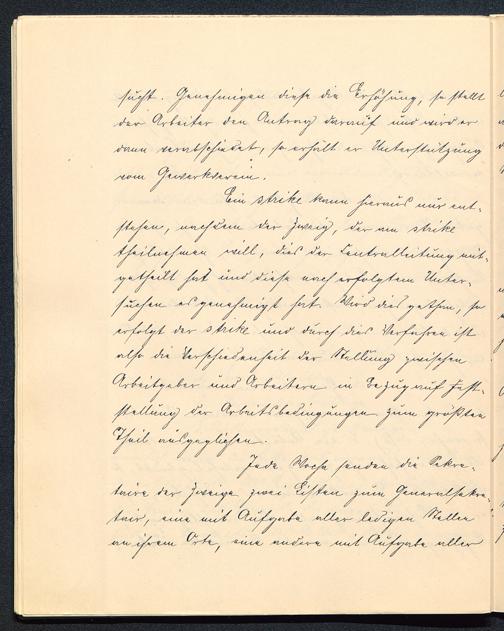 sucht. Genehmigen diese die Erhöhung, so stellt
der Arbeiter den Antrag darauf und wird er
dann verabschiedet, so erhält er Unterstützung
vom Gewerkverein.
Ein strike kann hieraus nur ent-
stehen, nachdem der Zweig, der am strike
theilnehmen will, dies der Centralleitung mit-
getheilt hat und diese nach erfolgtem Unter-
suchen es genehmigt hat. Wird dies gethan, so
erfolgt der strike und durch dies Verfahren ist
also die Verschiedenheit der Stellung zwischen
Arbeitgeber und Arbeitern in Bezug auf Fest-
stellung der Arbeitsbedingungen zum größten
Theil ausgeglichen.
Jede Woche senden die Sekre-
taire der Zweige zwei Listen zum Generalsekre-
tair, eine mit Aufgabe aller ledigen Stellen
an ihrem Orte, eine andere mit Aufgabe aller